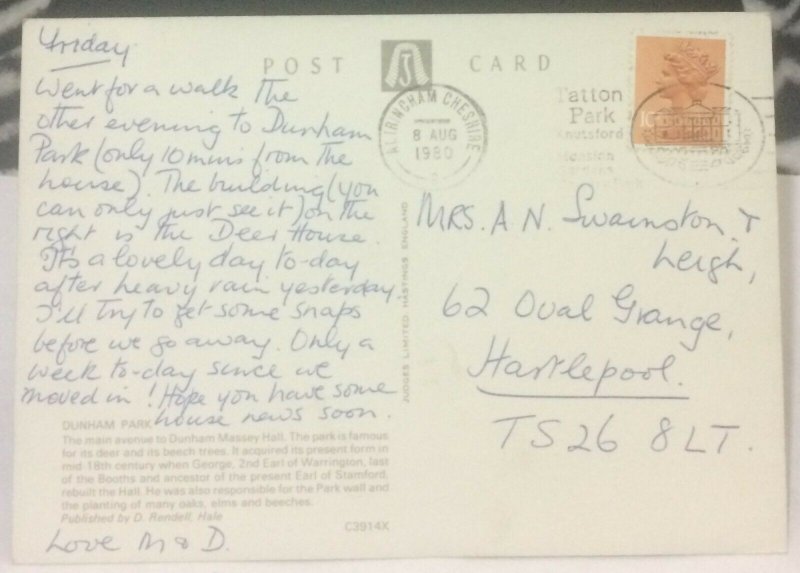 Friday.
Went for a walk the
other evening to Dunham
Park (only 10 mins from the
house). The building (you
can only just see it) on the
right is the Deer House.
It's a lovely day to-day
after heavy rain yesterday.
I'll try to get some snaps
before we go away. Only a
week to-day since we
moved in! Hope you have some
house news soon.
DUNHAM PARK
The main avenue to Dunham Massey Hall. The park is famous
for its deer and its beech trees. It acquired its present form in
mid 18th century when George, 2nd Earl of Warrington, last
of the Booths and ancestor of the present Earl of Stamford,
rebuilt the Hall. He was also responsible for the Park wall and
the planting of many oaks, elms and beeches.
Published by D. Rendell, Hale
C3914X
Love M & D.
POST CARD
J
JUDGES LIMITED HASTINGS ENGLAND
ALTRINCHAM CHESHIRE
8 AUG
1980
Tatton
Park
Knutsford
Mansion
Gardens
MRS. A. N. Swainston &
Leigh,
62 Oval Grange,
Hartlepool.
TS26 8LT.